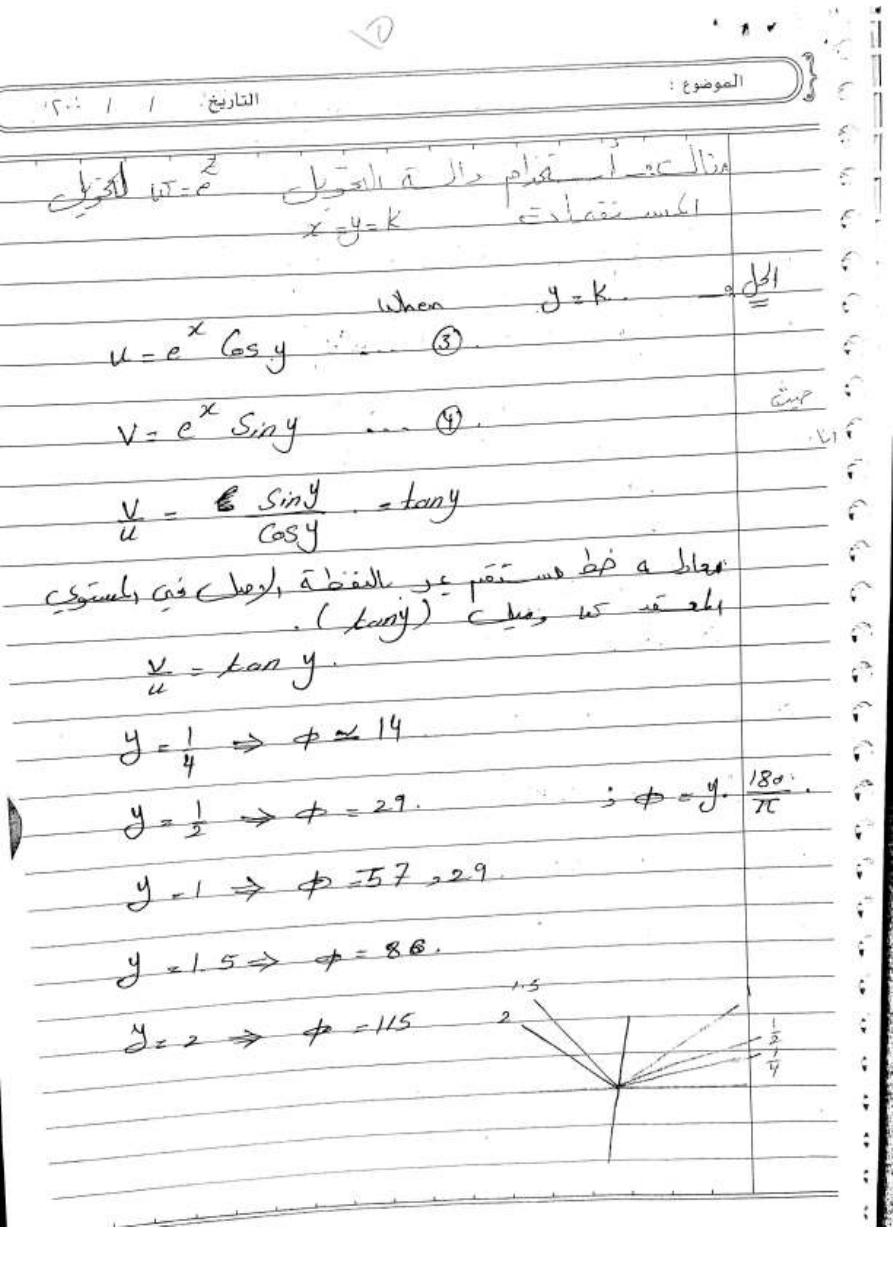 الموضوع :
التاريخ: / / ٢٠٠
مثال :- أستخدام دالة التحويل w = e^z لتحويل
المستقيمات x = y = k
الحل :- When y = k.
u = e^x Cos y ..... ③.
حيث
v = e^x Sin y .... ④.
v/u = Sin y / Cos y . = tan y
معادلة خط مستقيم يمر بالنقطة الاصل في المستوي
المعقد w وميل (tan y).
v/u = tan y.
y = 1/4 ⇒ φ ≃ 14
y = 1/2 ⇒ φ = 29. ; φ = y. 180/π .
y = 1 ⇒ φ = 57,29.
y = 1.5 ⇒ φ = 86.
1.5 1
y = 2 ⇒ φ = 115 2 1/2
1/4